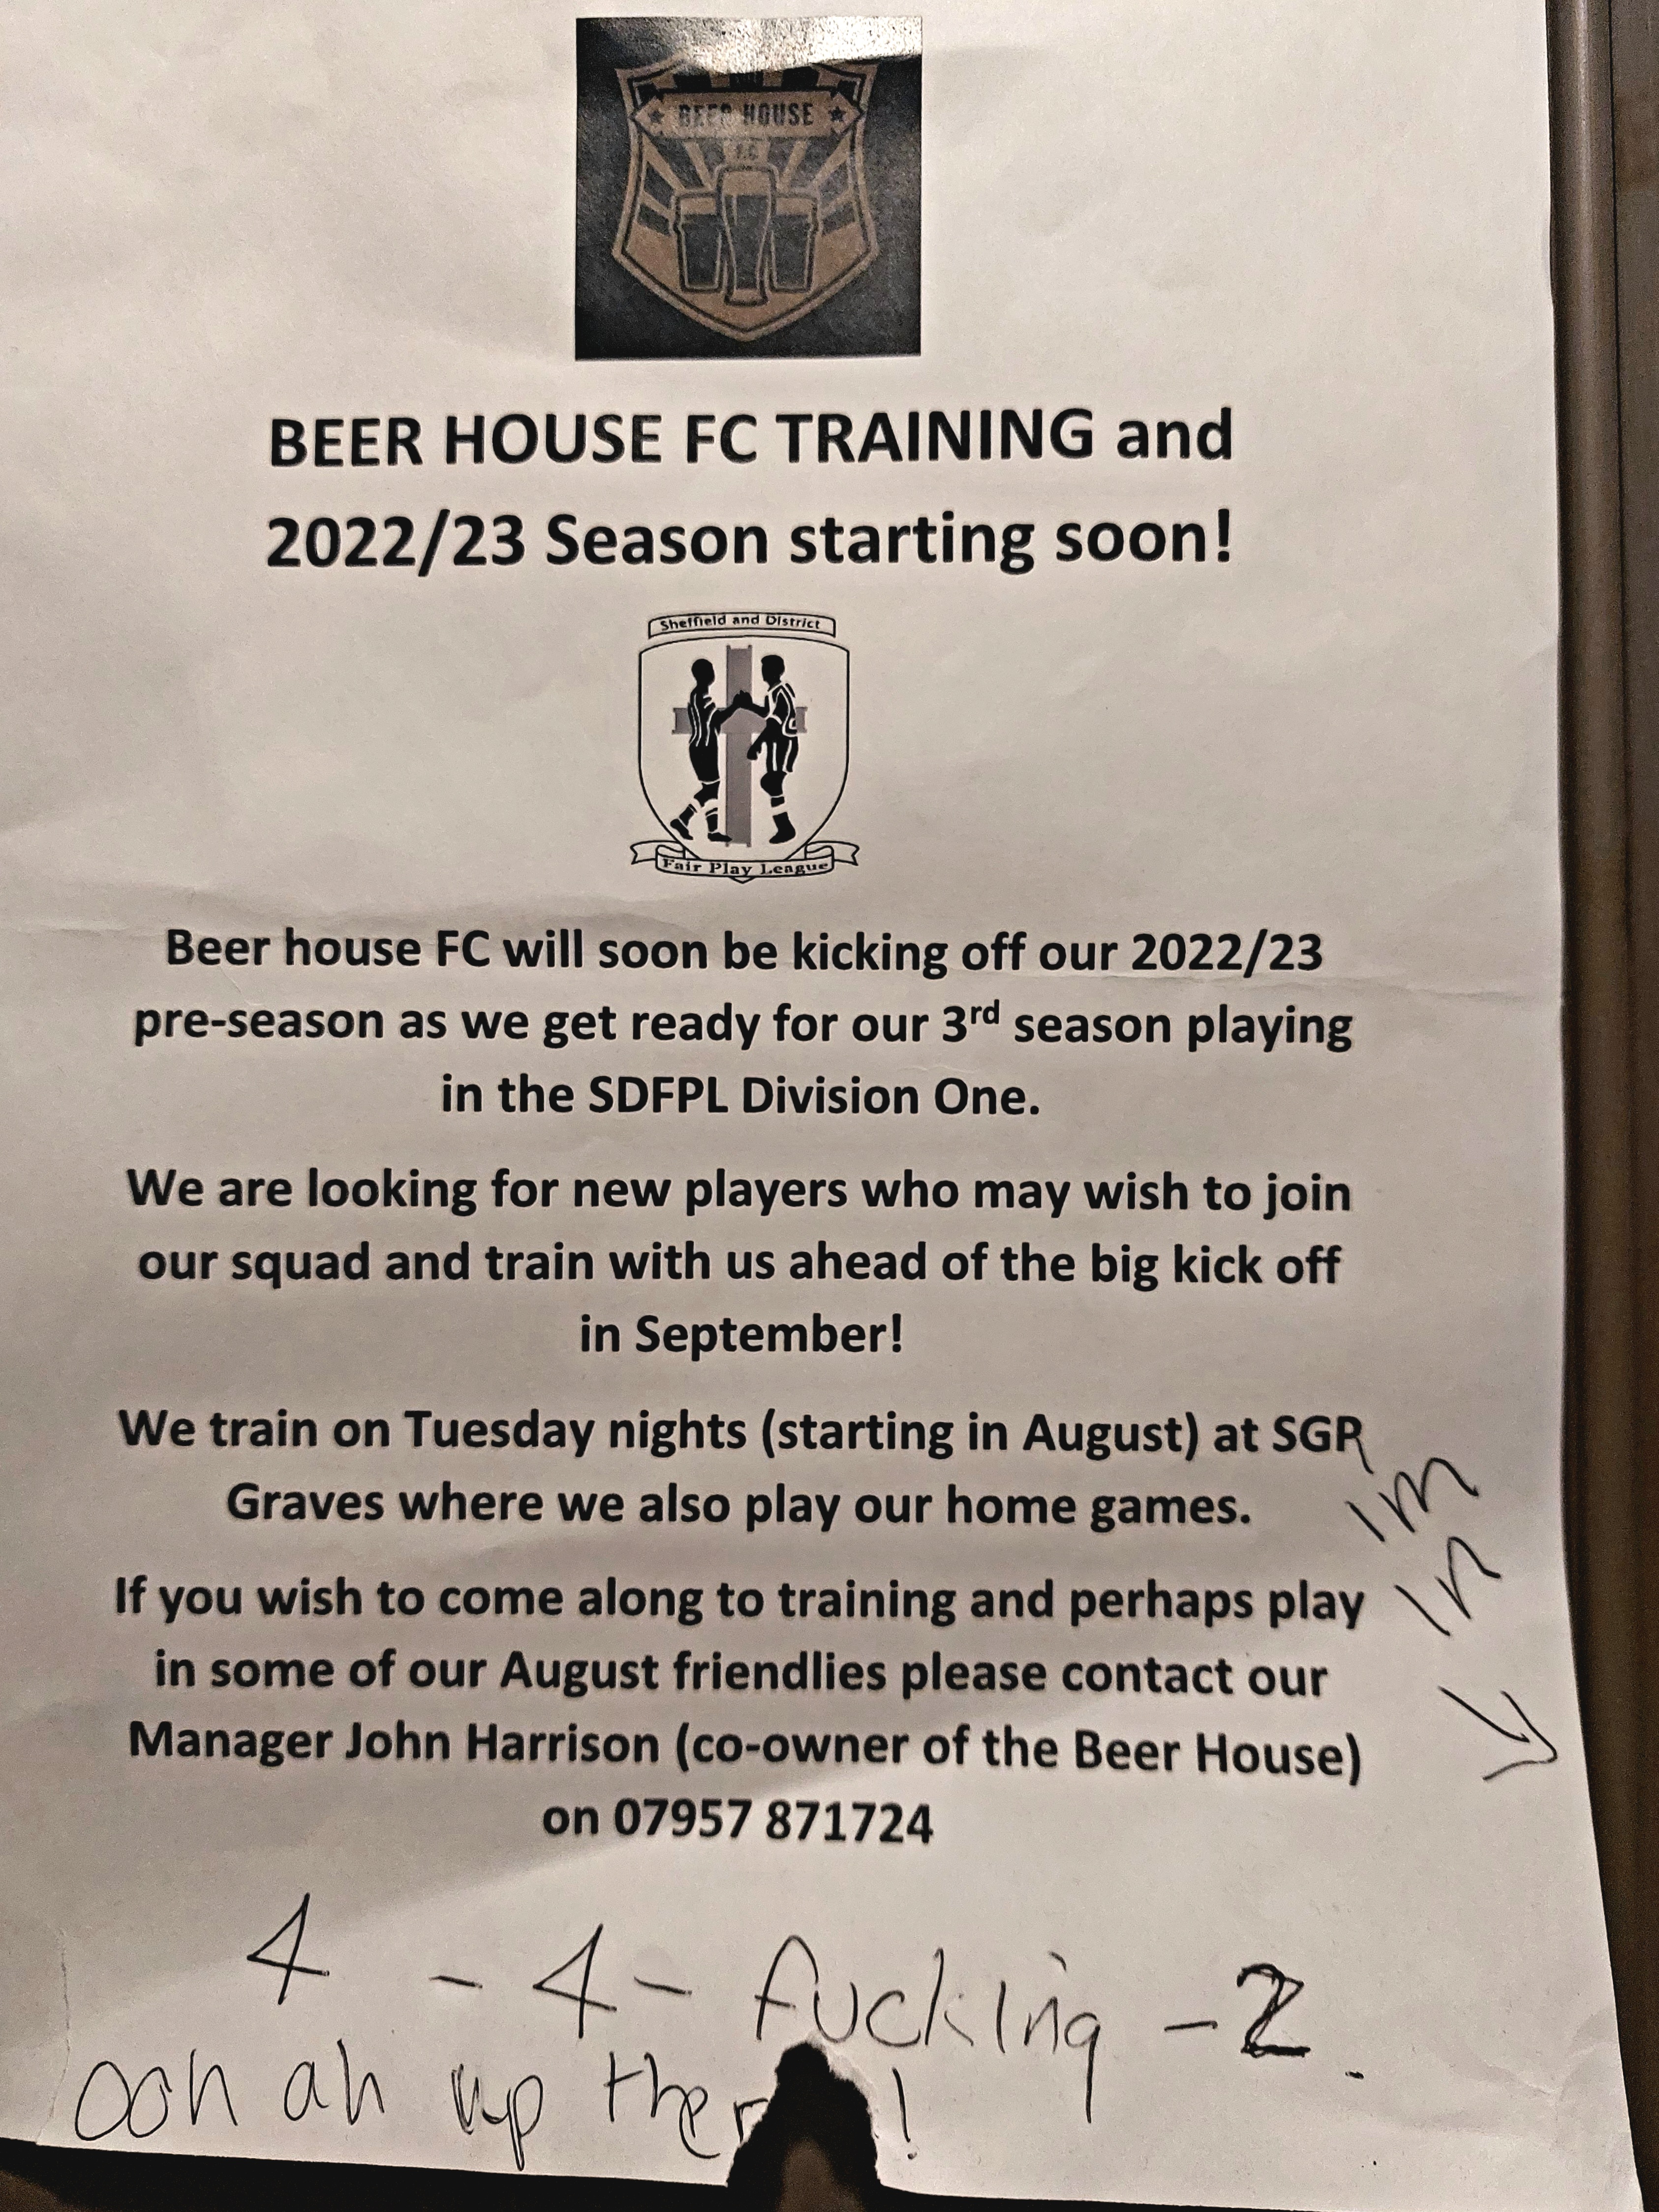 BEER HOUSE
F.C
BEER HOUSE FC TRAINING and
2022/23 Season starting soon!
Sheffield and District
Fair Play League
Beer house FC will soon be kicking off our 2022/23
pre-season as we get ready for our 3rd season playing
in the SDFPL Division One.
We are looking for new players who may wish to join
our squad and train with us ahead of the big kick off
in September!
We train on Tuesday nights (starting in August) at SGP
Graves where we also play our home games.
If you wish to come along to training and perhaps play
in some of our August friendlies please contact our
Manager John Harrison (co-owner of the Beer House)
on 07957 871724
Im
In
4 - 4 - fucking - 2.
ooh ah up ther !